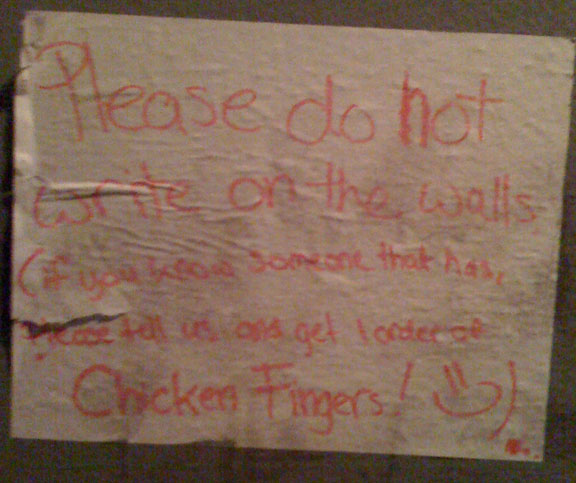 Please do not
write on the walls
(if you know someone that has,
please tell us and get 1 order of
Chicken Fingers! )